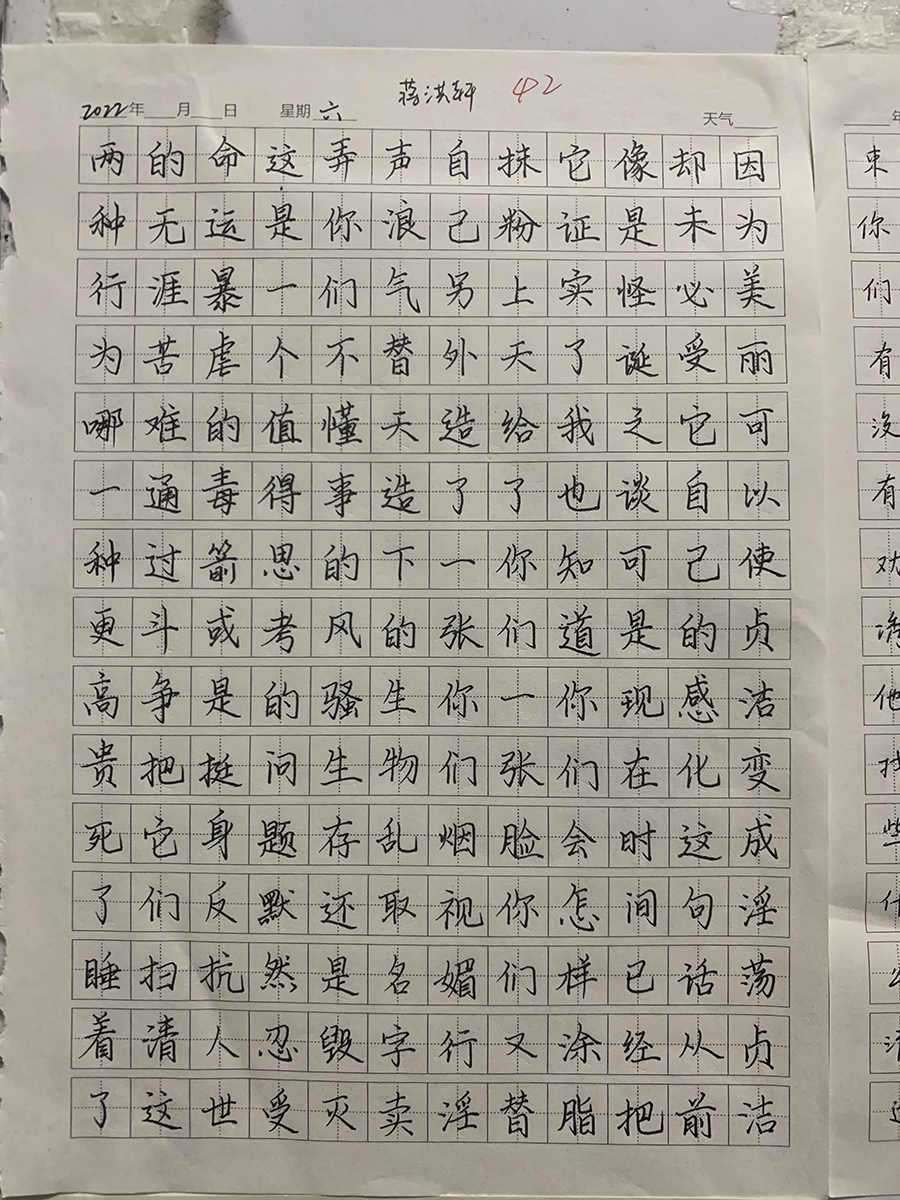 2022年 月 日 星期 六 蒋洪轩 42 天气
年
束你们有没有劝诱他找些什么消遣
因为美丽可以使贞洁变成淫荡贞洁
却未必受它自己的感化这句话从前
像是怪诞之谈可是现在时间已经把
它证实了我也知道你们会怎样涂脂
抹粉上天给了你们一张脸你们又替
自己另外造了一张你们烟视媚行淫
声浪气替天造下的生物乱取名字卖
弄你们不懂事的风骚生存还是毁灭
这是一个值得思考的问题默然忍受
命运暴虐的毒箭或是挺身反抗人世
的无涯苦难通过斗争把它们扫清这
两种行为哪一种更高贵死了睡着了